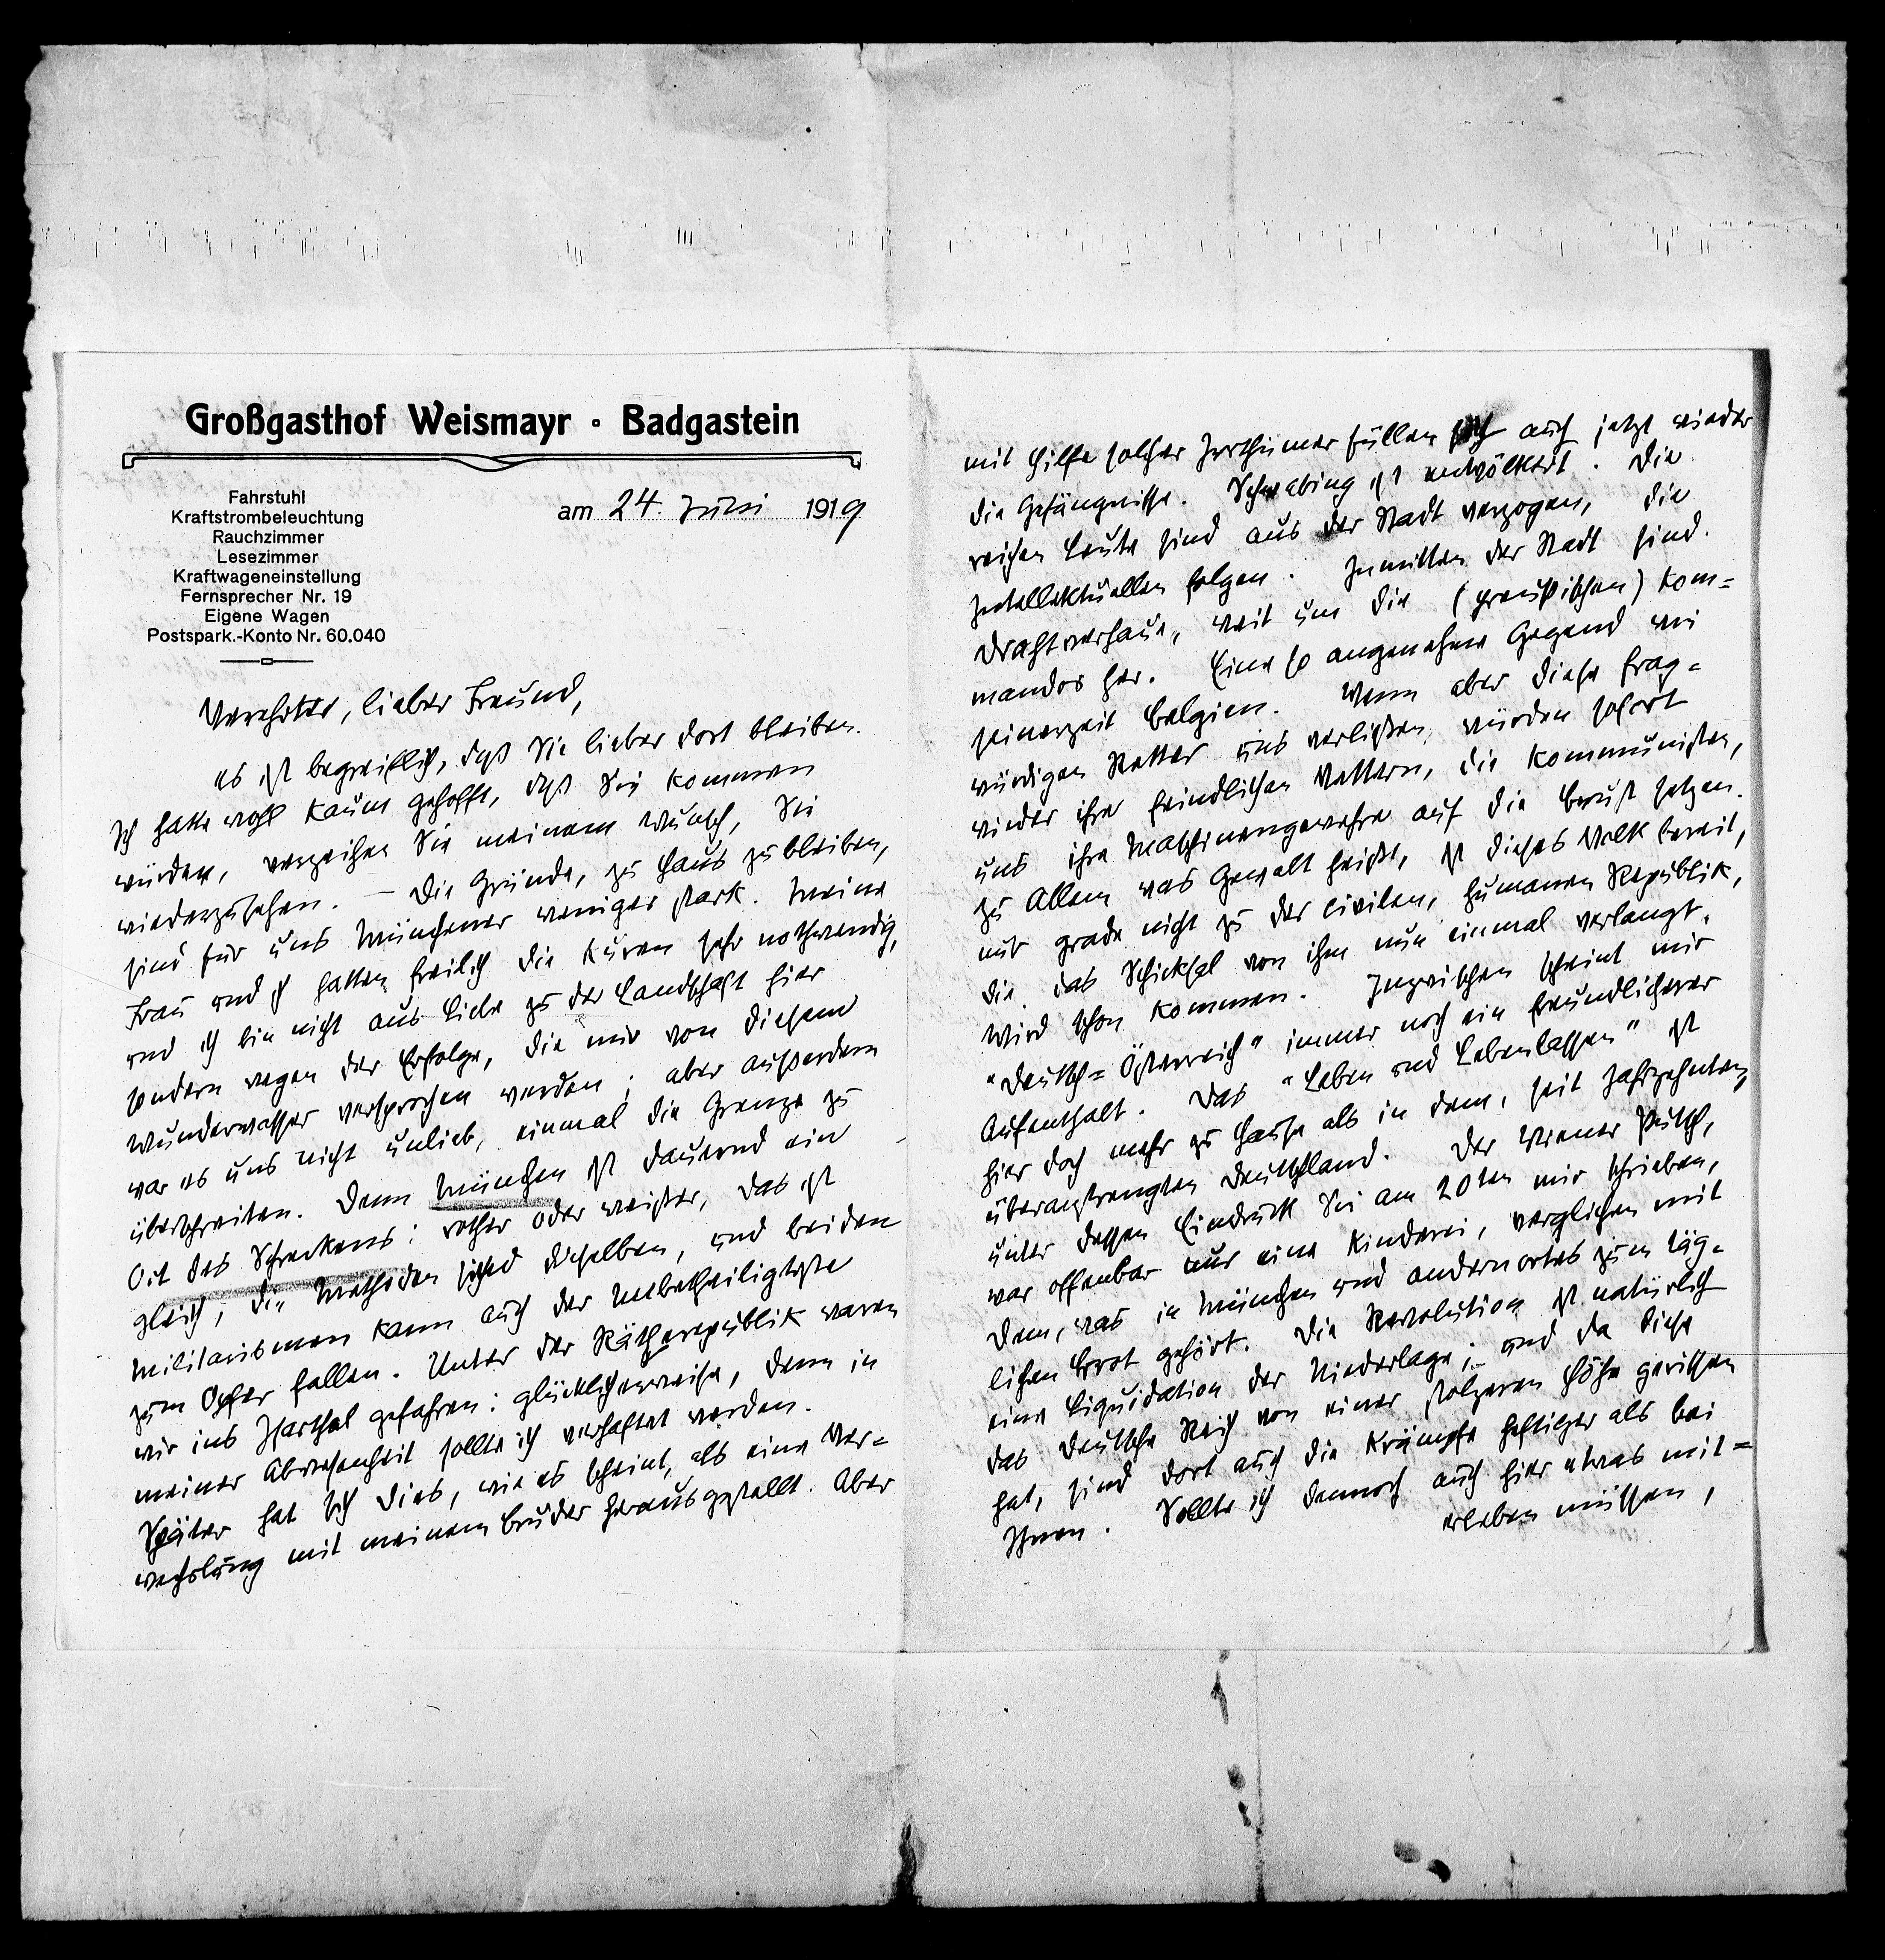 Großgasthof Weismayr · Badgastein
Fahrstuhl
Kraftstrombeleuchtung
Rauchzimmer
Lesezimmer
Kraftwageneinstellung
Fernsprecher Nr. 19
Eigene Wagen
Postspark.-Konto Nr. 60.040
am 24. Juni 1919
Verehrter, lieber Freund,
es ist begreiflich, daß Sie lieber dort bleiben.
Ich hatte wohl kaum gehofft, daß Sie kommen
würden, verzeihen Sie meinem Wunsch, Sie
wiederzusehen. – Die Gründe, zu Haus zu bleiben,
sind für uns Münchener weniger stark. Meine
Frau und ich hatten freilich die Kuren sehr nothwendig,
und ich bin nicht aus Liebe zu der Landschaft hier
sondern wegen der Erfolge, die mir von diesem
Wunderwasser versprochen werden; aber außerdem
war es uns nicht unlieb, einmal die Grenze zu
überschreiten. Denn München ist dauernd ein
Ort des Schreckens: rother oder weißer, das ist
gleich, die Methoden sind dieselben, und beiden
Militarismen kann auch der Unbetheiligtste
zum Opfer fallen. Unter der Räthrepublik waren
wir ins Isarthal gefahren: glücklicherweise, denn in
meiner Abwesenheit sollte ich verhaftet werden.
Später hat sich dies, wie es scheint, als eine Ver=
wechslung mit meinem Bruder herausgestellt. Aber
mit Hilfe solcher Irrthümer füllen sich auch jetzt wieder
die Gefängnisse. Schwabing ist entvölkert. Die
reichen Leute sind aus der Stadt verzogen, die
Intellektuellen folgen. Inmitten der Stadt sind
Drahtverhaue, weit um die (preußischen) Kom=
mandos her. Eine so angenehme Gegend wie
seinerzeit Belgien. Wenn aber diese frag=
würdigen Retter uns verließen, würden sofort
wieder ihre feindlichen Vettern, die Kommunisten,
uns ihre Maschinengewehre auf die Brust setzen.
Zu Allem was Gewalt heißt, ist dieses Volk bereit,
nur grade nicht zu der civilen, humanen Republik,
die das Schicksal von ihm nun einmal verlangt.
Wird schon kommen. Inzwischen scheint mir
"Deutsch=Österreich" immer noch ein freundlicherer
Aufenthalt. Das "Leben und Lebenlassen" ist
hier doch mehr zu Hause als in dem, seit Jahrzehnten,
überanstrengten Deutschland. Der Wiener Putsch,
unter dessen Eindruck Sie am 20ten mir schrieben,
war offenbar nur eine Kinderei, verglichen mit
dem, was in München und andernortes zum täg=
lichen Brot gehört. Die Revolution ist natürlich
eine Liquidation der Niederlage; und da diese
das Deutsche Reich von einer stolzeren Höhe gerissen
hat, sind dort auch die Krämpfe heftiger als bei
Ihnen. Sollte ich dennoch auch hier etwas mit=
erleben müssen,